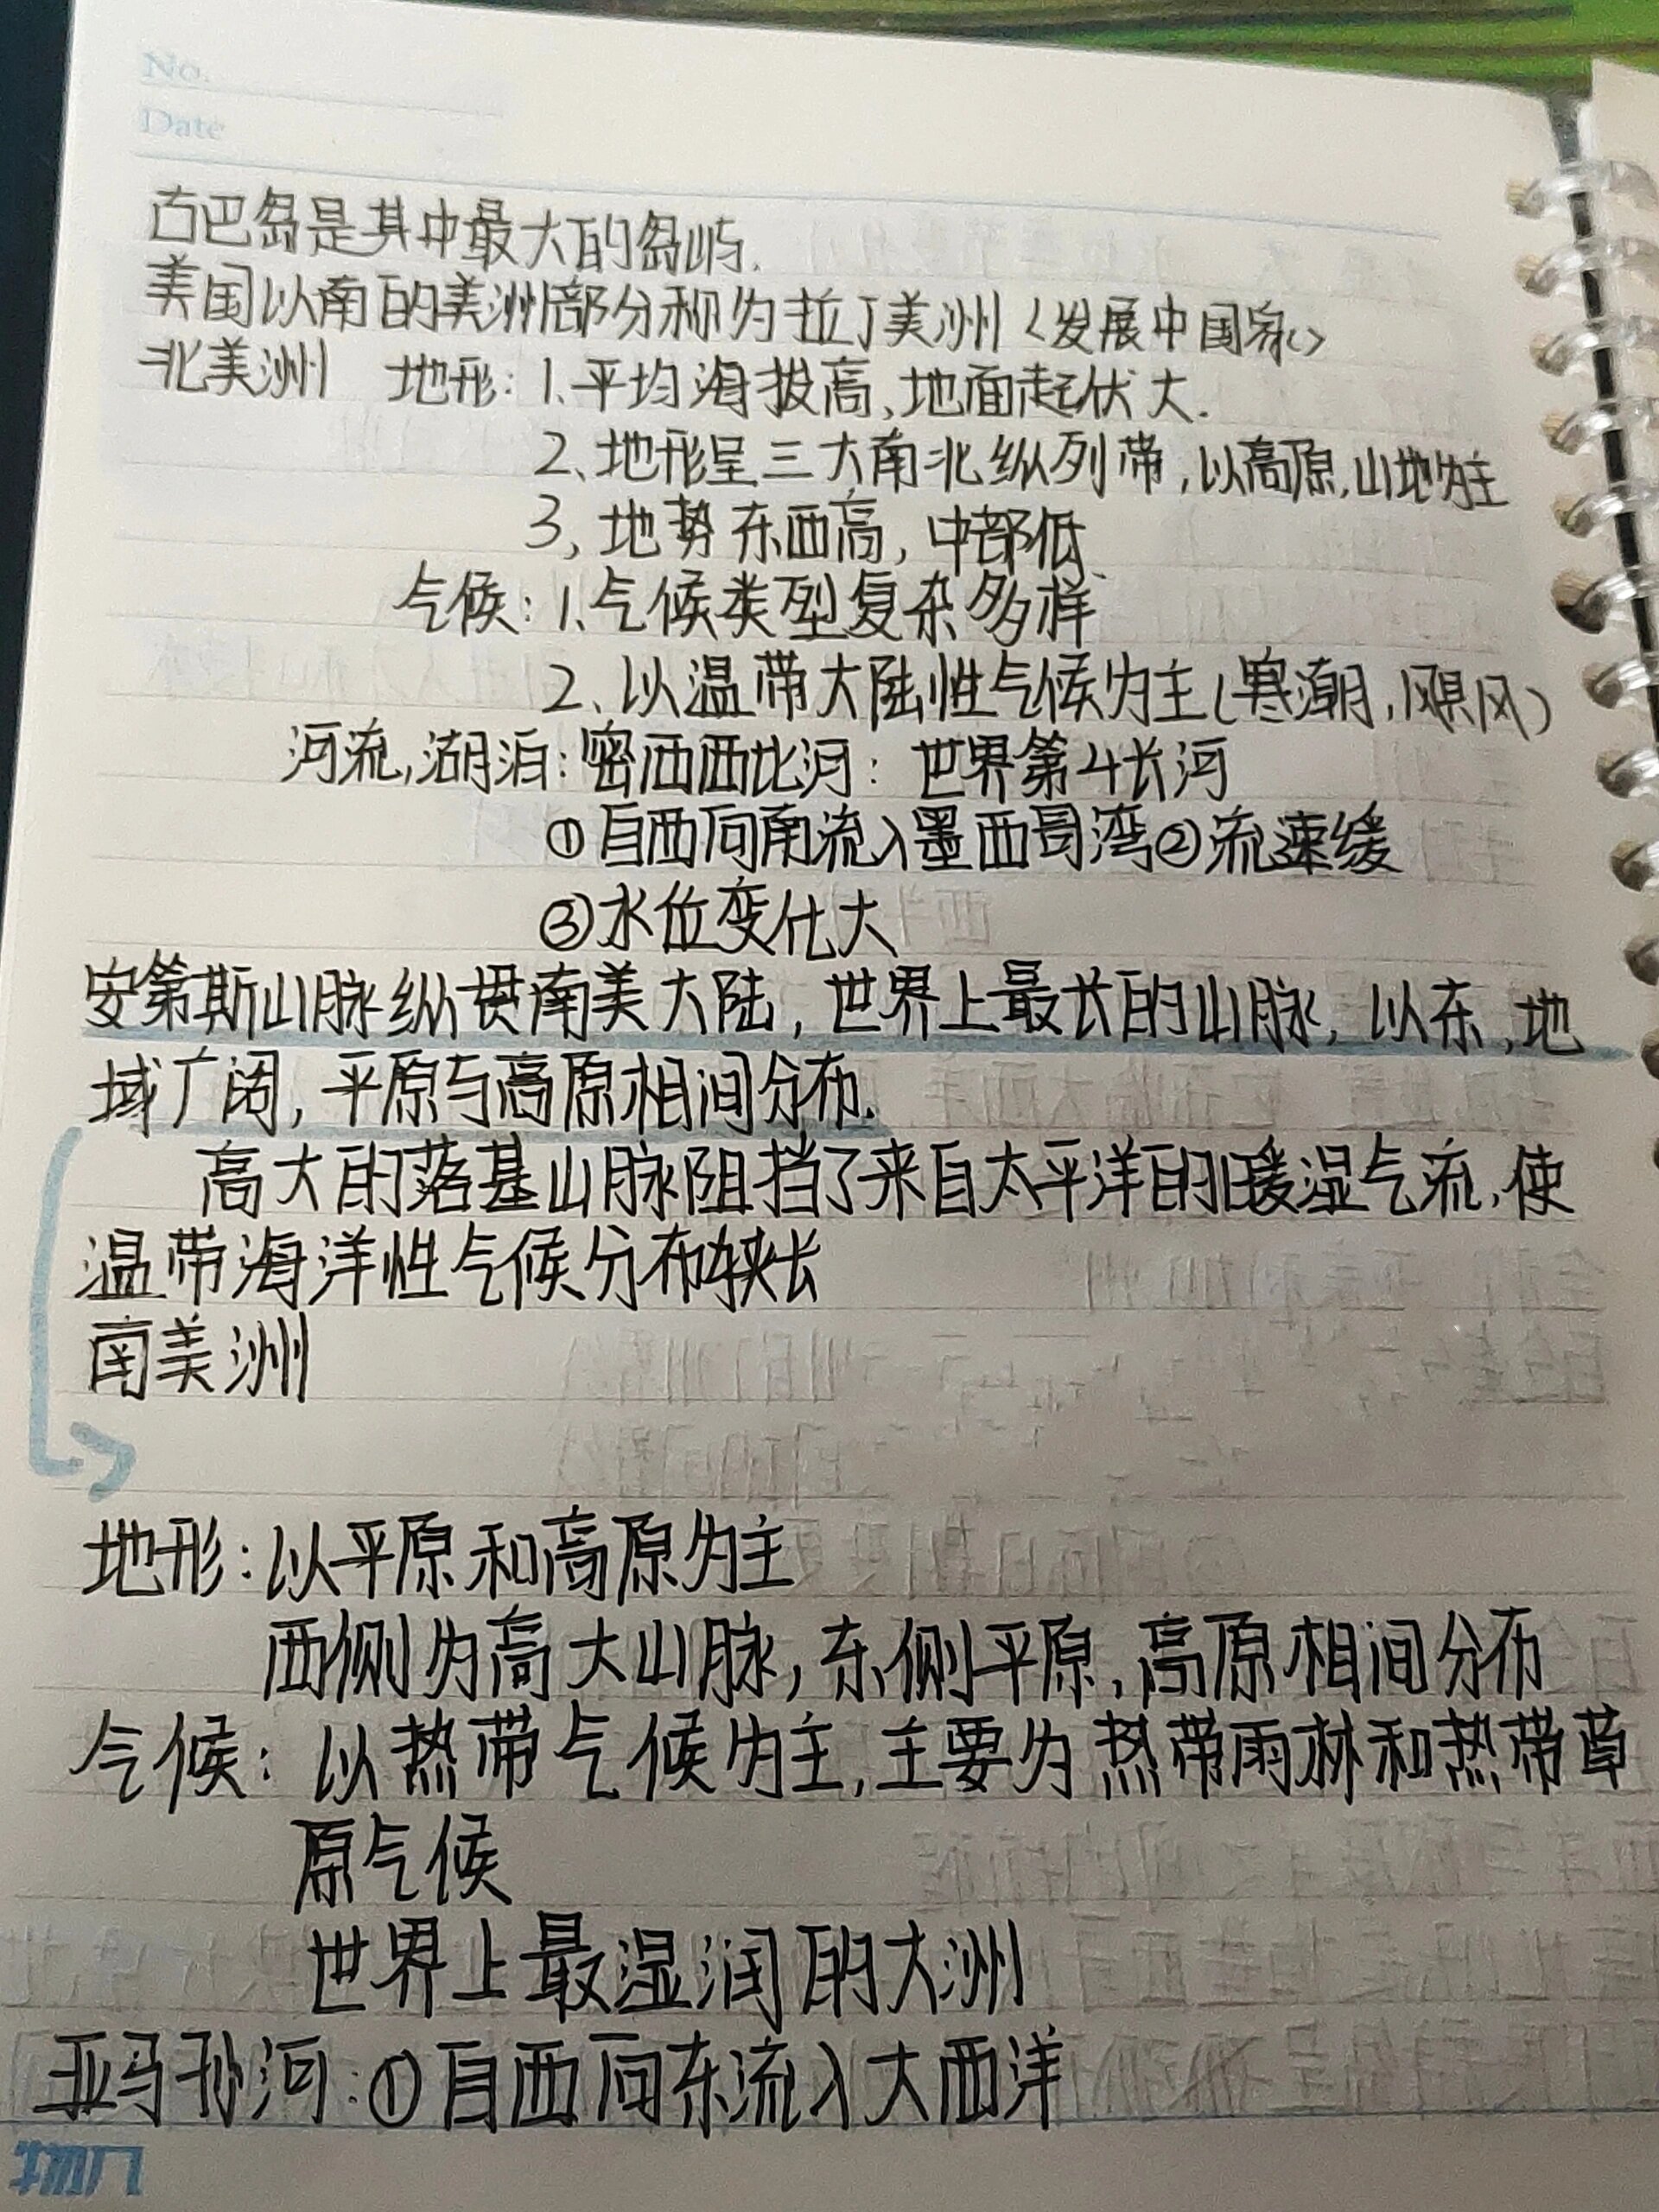 No.
Date
古巴岛是其中最大的岛屿.
美国以南的美洲部分称为拉丁美洲〈发展中国家〉
北美洲 地形:1.平均海拔高、地面起伏大.
2、地形呈三大南北纵列带,以高原,山地为主
3,地势东西高,中部低
气候:1.气候类型复杂多样
2、以温带大陆性气候为主(寒潮,飓风)
河流,湖泊:密西西比河:世界第4长河
①自西向南流入墨西哥湾②流速缓
③水位变化大
安第斯山脉纵贯南美大陆,世界上最长的山脉,以东,地
域广阔,平原与高原相间分布.
高大的落基山脉阻挡了来自太平洋的暖湿气流,使
温带海洋性气候分布狭长
南美洲
地形:以平原和高原为主
西侧为高大山脉,东侧平原,高原相间分布
气候:以热带气候为主,主要为热带雨林和热带草
原气候
世界上最湿润的大洲
亚马孙河:①自西向东流入大西洋